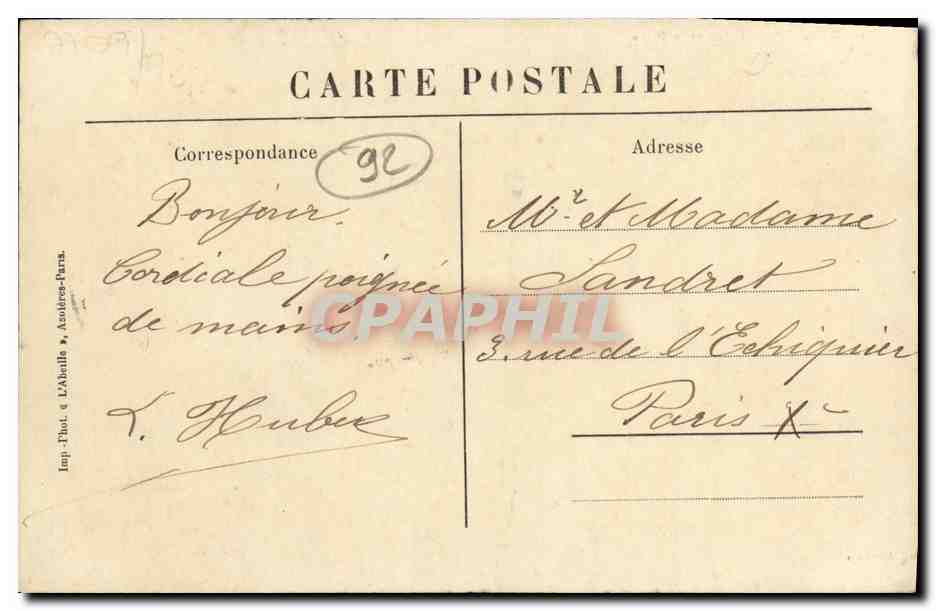 CARTE POSTALE
Correspondance
92
Adresse
Bonjour
Cordiale poignée
de mains
L. Huber
Mr et Madame
Sandret
3. rue de l'Echiquier
Paris Xe
Imp-Phot. « L'Abeille », Asnières-Paris.
CPAPHIL